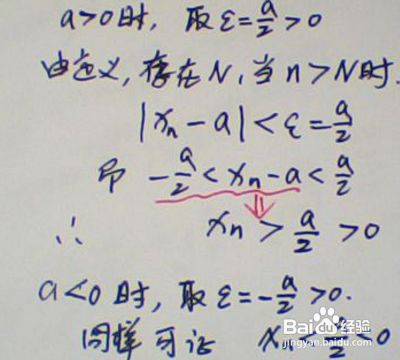 a>0时, 取ε=a/2>0
由定义, 存在N, 当n>N时,
|xn-a|<ε=a/2
即 -a/2<xn-a<a/2
∴ xn>a/2>0
a<0时, 取ε=-a/2>0.
同样可证 xn
Baidu经验
jingyan.baidu.com